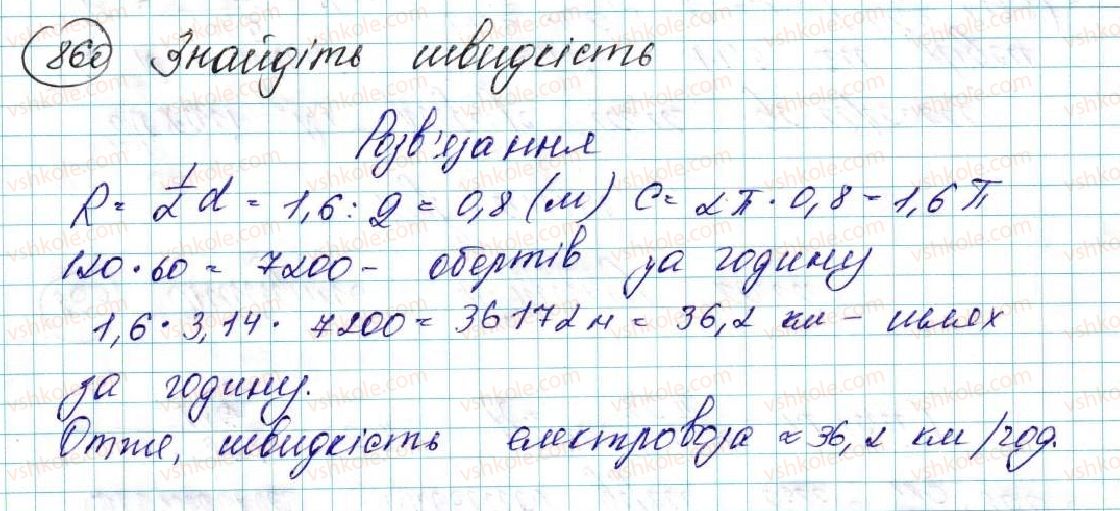 860 Знайдіть швидкість
Розв'язання
R = 1/2 d = 1,6 : 2 = 0,8 (м) C = 2π · 0,8 = 1,6 π
120 · 60 = 7200 - обертів за годину
1,6 · 3,14 · 7200 = 36172 м = 36,2 км - шлях
за годину.
Отже, швидкість електровоза ≈ 36,2 км/год.
vshkole.com